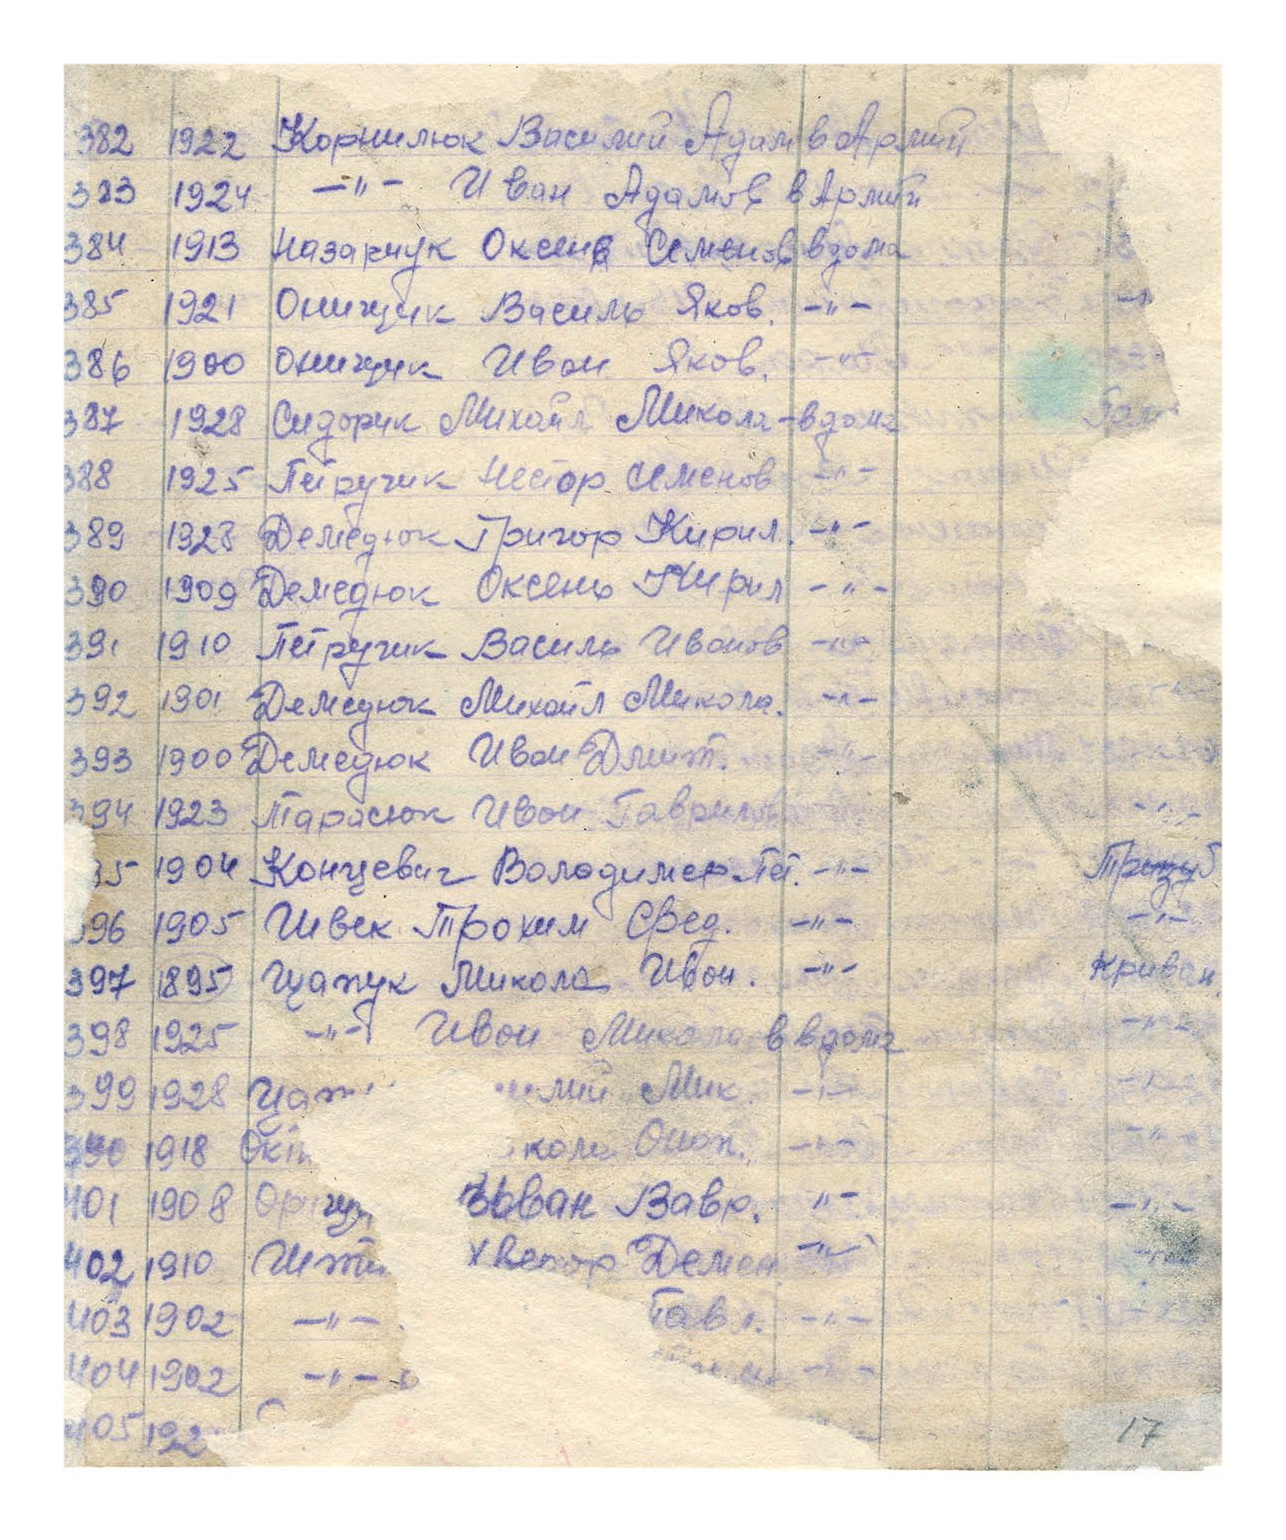 382 1922 Корнилюк Василий Адам в Армий
383 1924 —"— Иван Адамов в Армий
384 1913 Назарчук Оксен Семенов вдома
385 1921 Онищук Василь Яков. —"—
386 1900 Онищук Иван Яков. —"—
387 1928 Сидорук Михайл Микола - вдома
388 1925 Петручик Нестор Семенов —"—
389 1928 Демедюк Григор Кирил. —"—
390 1909 Демедюк Оксень Кирил —"—
391 1910 Петручик Василь Иванов —"—
392 1901 Демедюк Михайл Микола. —"—
393 1900 Демедюк Иван Дмит. —"—
394 1923 Тарасюк Иван Гаврилов —"—
95 1904 Концевич Володимер Пет. —"— Тризуб
396 1905 Швек Трохим Сред. —"— —"—
397 1895 Щапук Микола Иван. —"— Криван.
398 1925 —"— Иван Микола в вдома —"—
399 1928 Мик. —"— —"—
1918 —"— —"—
401 1908 Иован Вавр. "— —"—
402 1910 Демен —"— —"—
403 1902 —"— Гав —"—
404 1902 —"— —"—
405 192
17